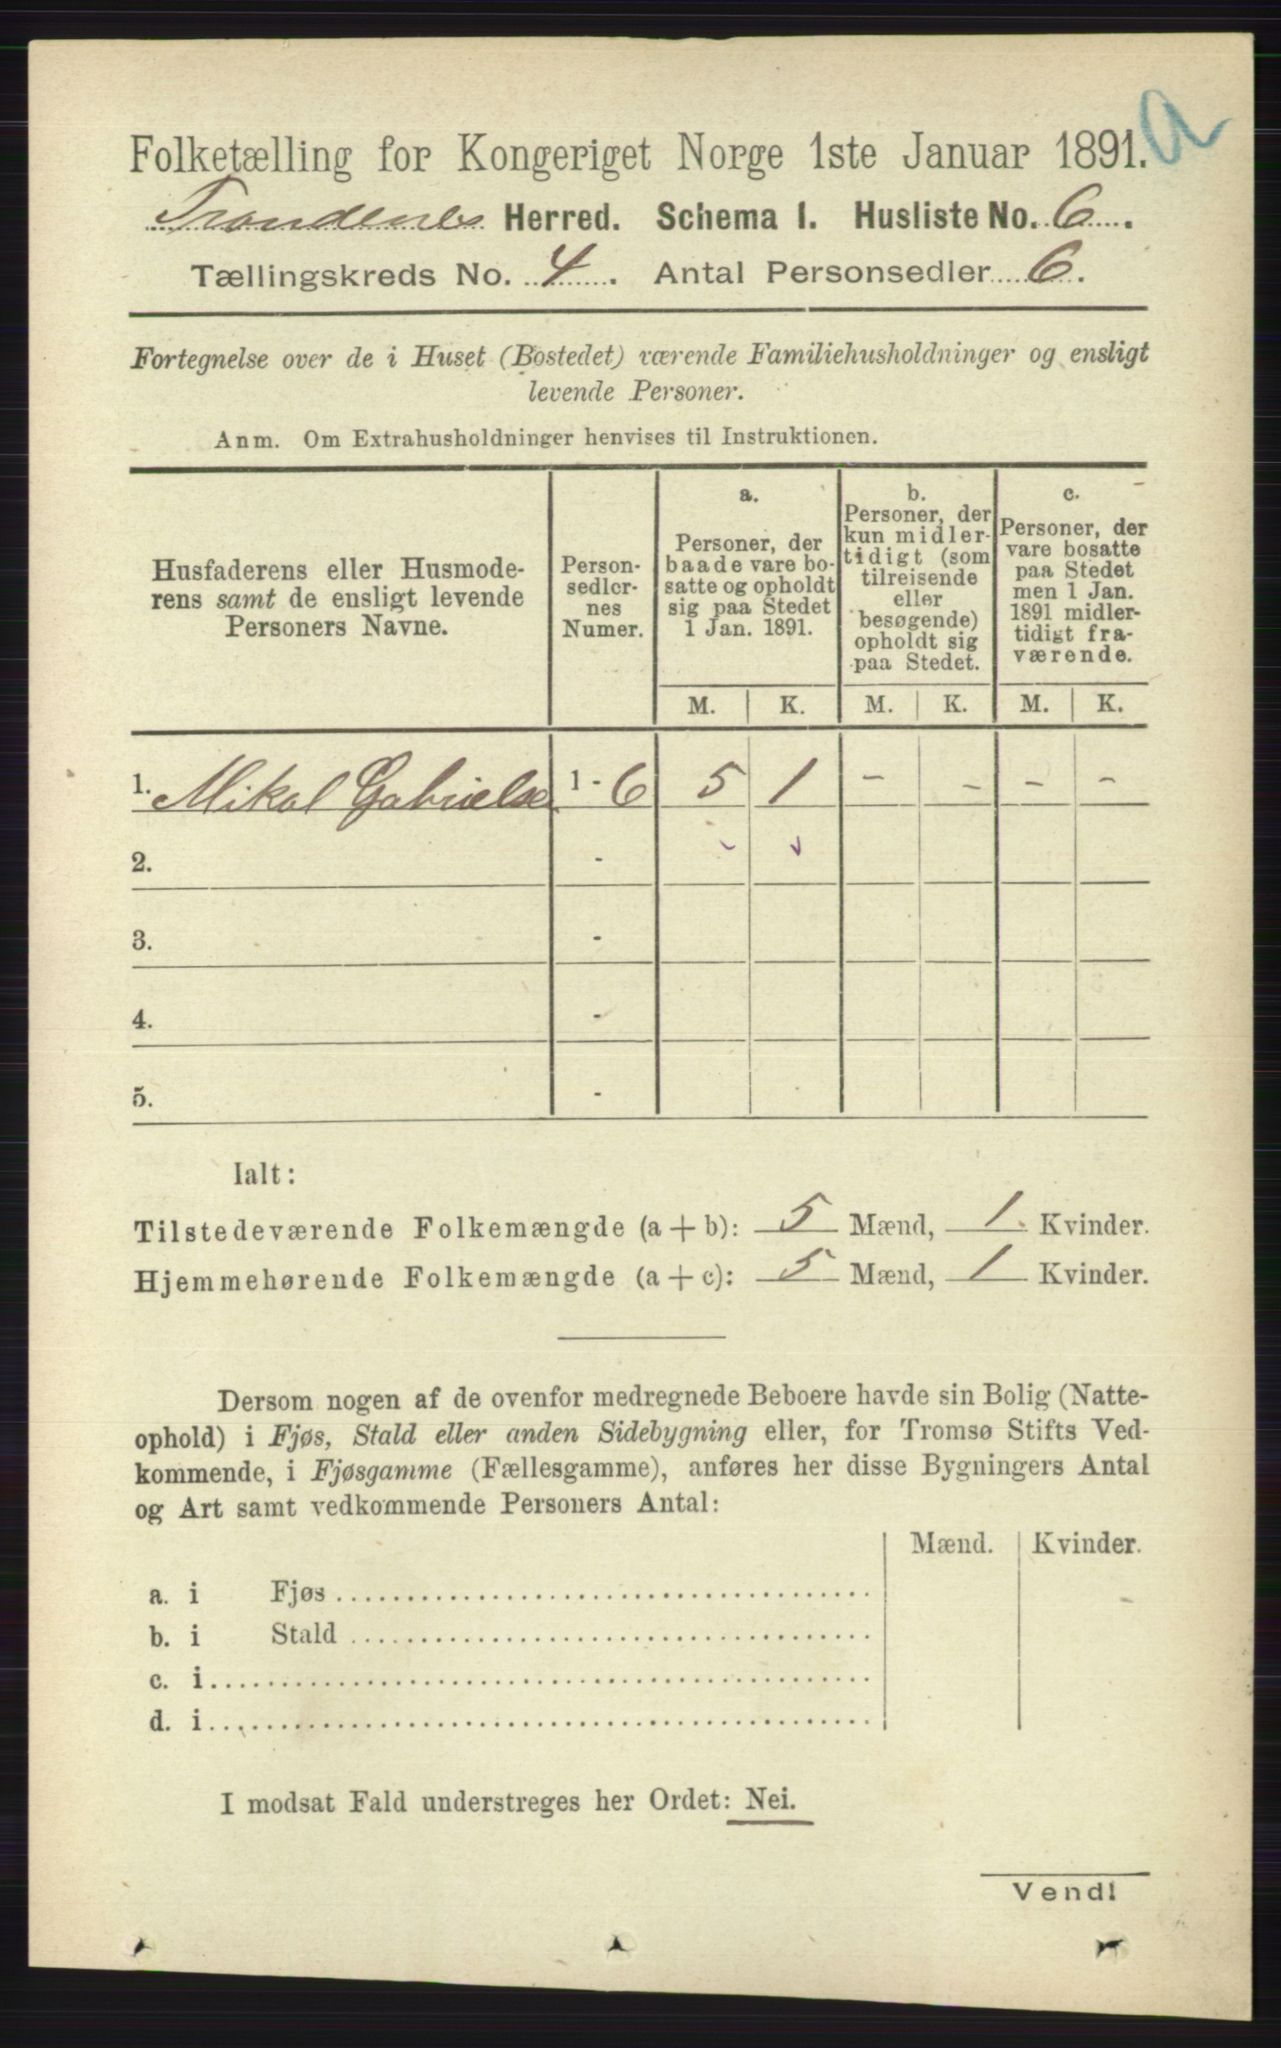 a
Folketælling for Kongeriget Norge 1ste Januar 1891.
Trondenes Herred. Schema I. Husliste No. 6.
Tællingskreds No. 4. Antal Personsedler 6.
Fortegnelse over de i Huset (Bostedet) værende Familiehusholdninger og ensligt
levende Personer.
Anm. Om Extrahusholdninger henvises til Instruktionen.
Husfaderens eller Husmode-
rens samt de ensligt levende
Personers Navne.
Person-
sedler-
nes
Numer.
a.
Personer, der
baade vare bo-
satte og opholdt
sig paa Stedet
1 Jan. 1891.
b.
Personer, der
kun midler-
tidigt (som
tilreisende
eller
besøgende)
opholdt sig
paa Stedet.
c.
Personer, der
vare bosatte
paa Stedet
men 1 Jan.
1891 midler-
tidigt fra-
værende.
M. K. M. K. M. K.
1. Mikal Gabrielse 1 - 6 5 1 - - - -
2. -
3. -
4. -
5. -
Ialt:
Tilstedeværende Folkemængde (a + b): 5 Mænd, 1 Kvinder.
Hjemmehørende Folkemængde (a + c): 5 Mænd, 1 Kvinder.
Dersom nogen af de ovenfor medregnede Beboere havde sin Bolig (Natte-
ophold) i Fjøs, Stald eller anden Sidebygning eller, for Tromsø Stifts Ved-
kommende, i Fjøsgamme (Fællesgamme), anføres her disse Bygningers Antal
og Art samt vedkommende Personers Antal:
Mænd. Kvinder.
a. i Fjøs
b. i Stald
c. i
d. i
I modsat Fald understreges her Ordet: Nei.
Vend!